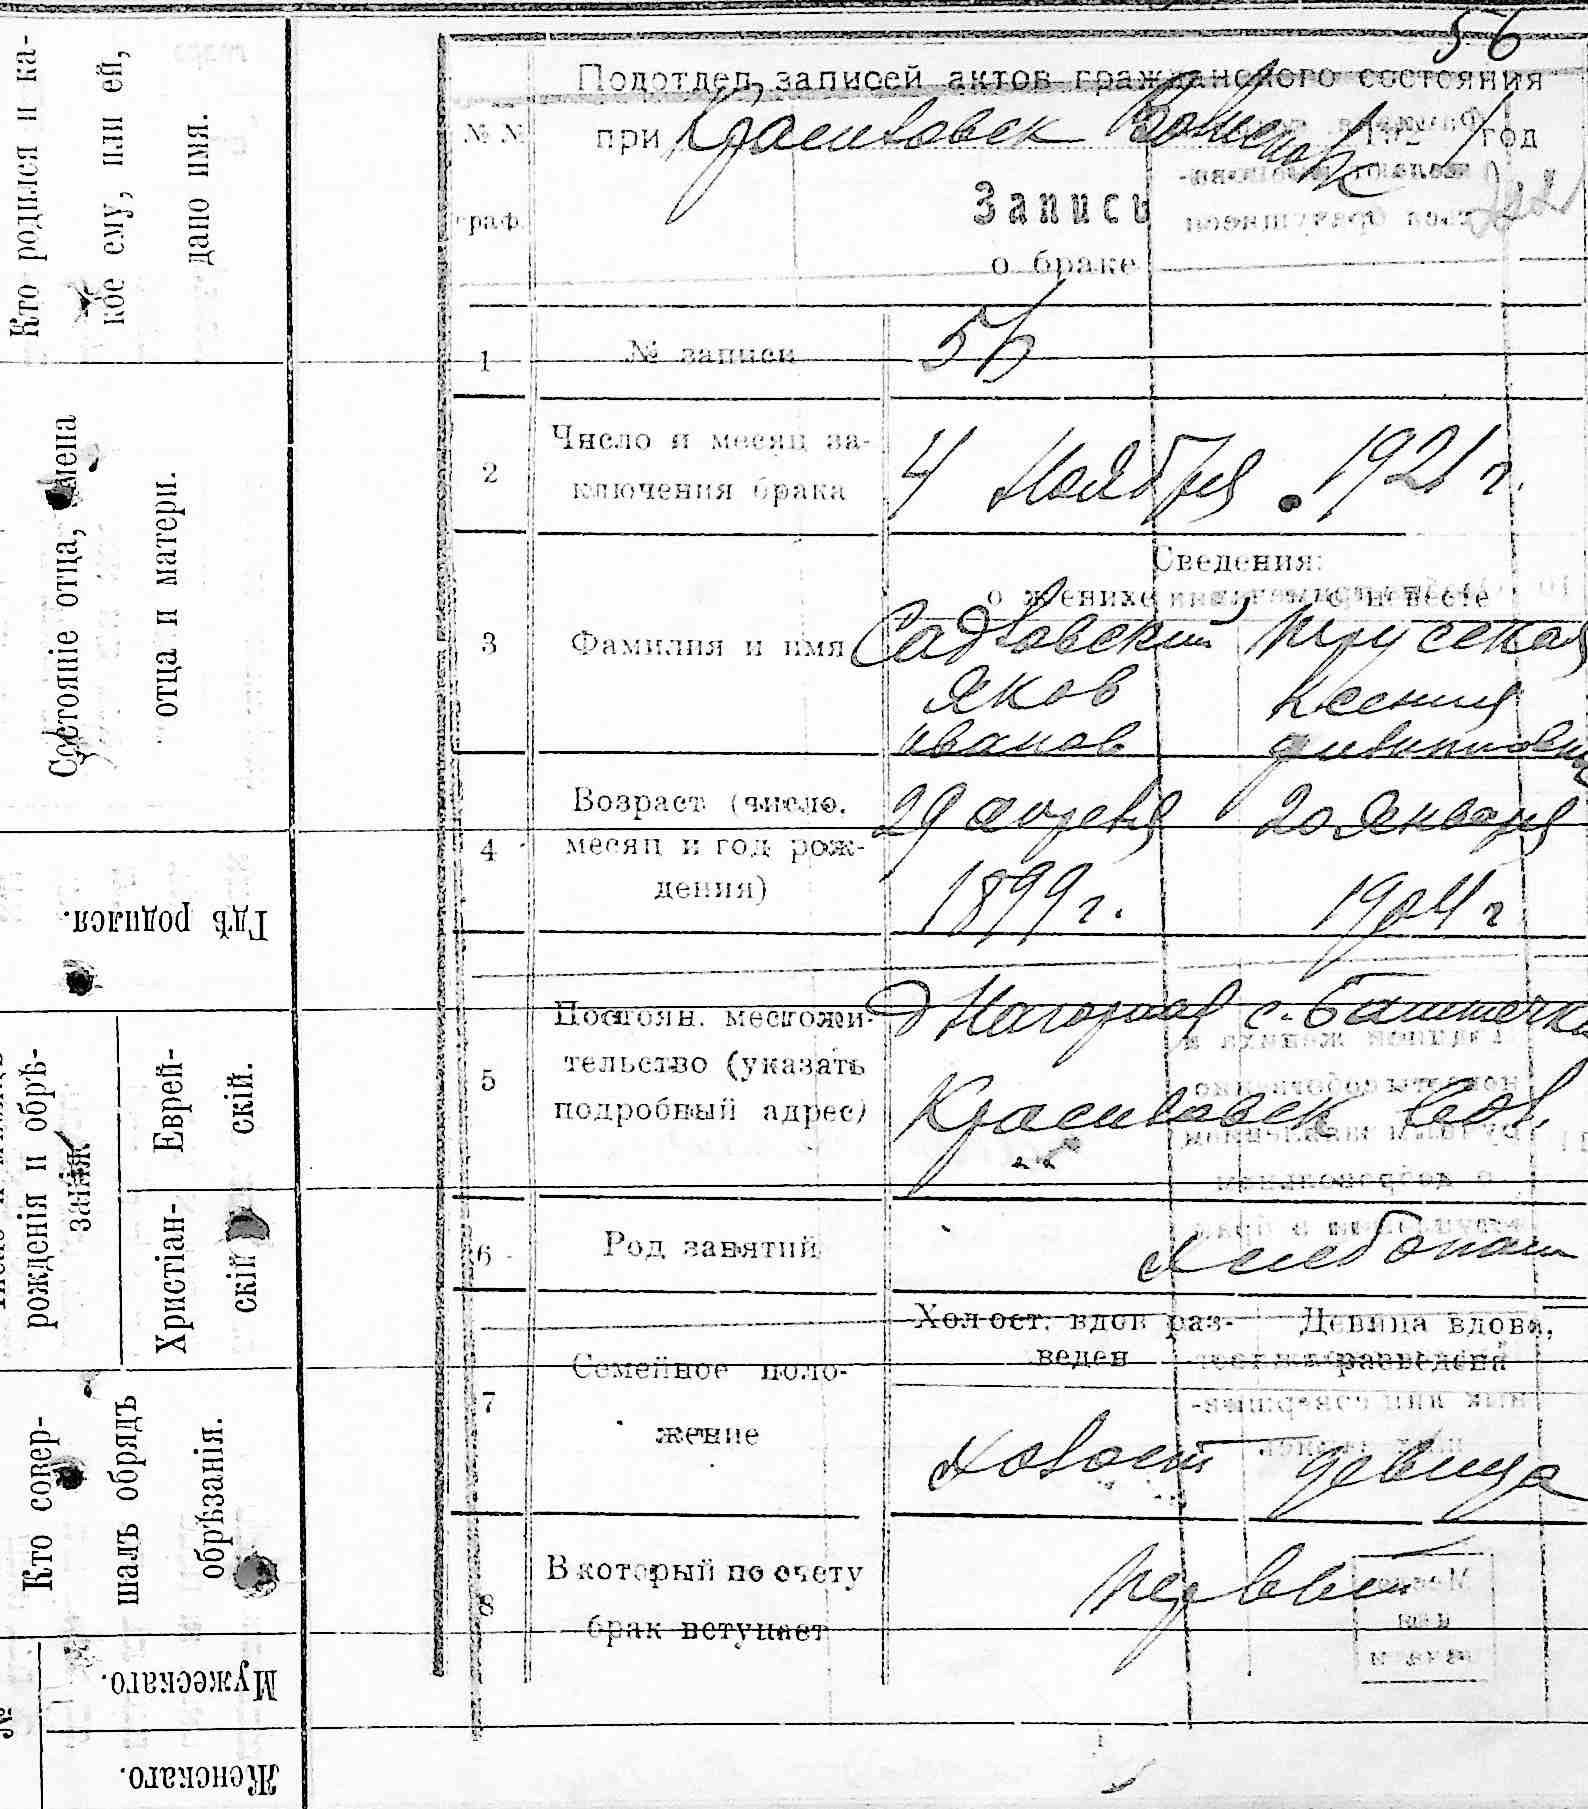 56
Подотдел записей актов гражданского состояния
№ №
граф.
при Красиловск 192 1 год
Запись
о браке
1 № записи 56
2 Число и месяц за-
ключения брака
4 Ноября . 1921 г.
Сведения:
о женихе о невесте
3 Фамилия и имя
Садловский
Яков Ксения
Иванов
4 Возраст (число,
месяц и год рож-
дения)
29 апреля 20 Января
1899 г. 1904 г
5 Постоян. местожи-
тельство (указать
подробный адрес)
Красиловск
6 Род занятий Хлебопаш
7 Семейное поло-
жение
Холост. вдов раз-
веден
Девица вдова,
разведена
Холост девица
8 В который по счету
брак вступает
Первый
Кто родился и ка-
кое ему, или ей,
дано имя.
Состояніе отца, имена
отца и матери.
Гдѣ родился.
рожденія и обрѣ-
занія
Еврей-
скій.
Христіан-
скій
Кто совер-
шалъ обрядъ
обрѣзанія.
№
Мужескаго.
Женскаго.